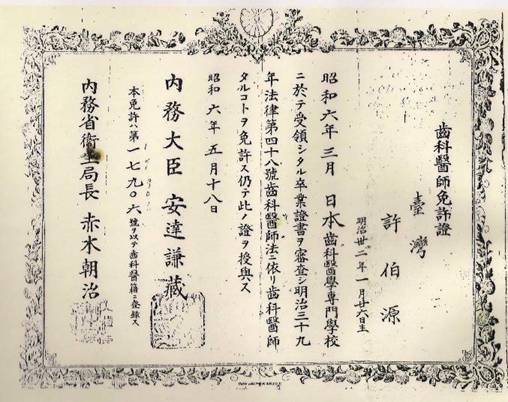 齒科醫師免許證
臺灣
許伯源
明治卅二年一月廿六日生
昭和六年三月日本齒科醫學專門學校
ニ於テ受領シタル卒業證書ヲ審査シ明治三十九
年法律第四十八號齒科醫師法ニ依リ齒科醫師
タルコトヲ免許ス仍テ此ノ證ヲ授與ス
昭和六年五月十八日
內務大臣 安達謙藏
本免許ハ第一七九〇六號ヲ以テ齒科醫籍ニ登錄ス
內務省衛生局長 赤木朝治